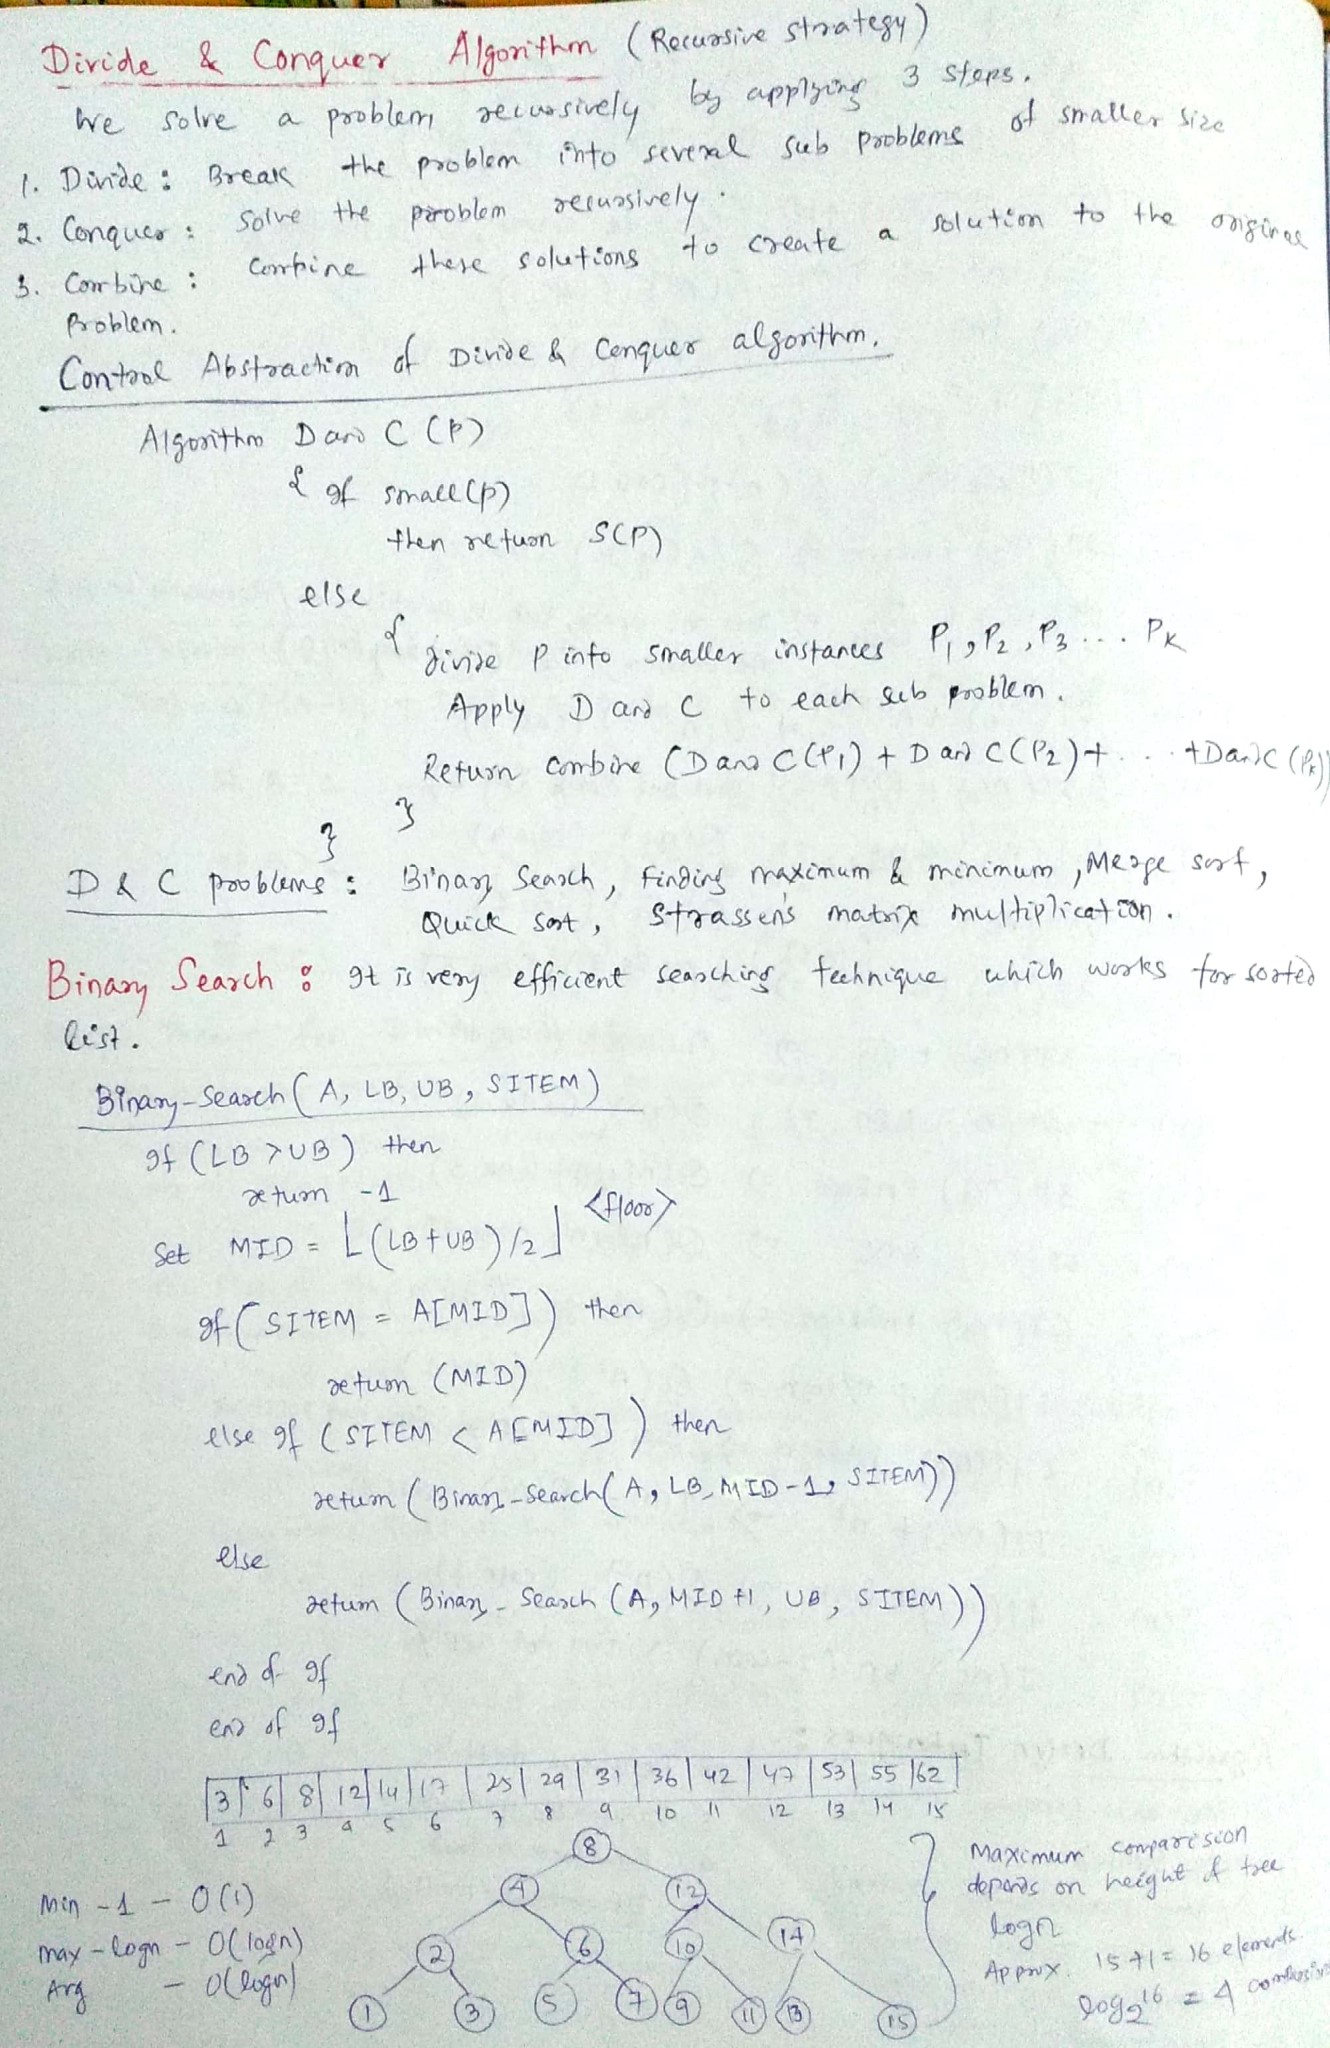 Divide & Conquer Algorithm (Recursive strategy)
We solve a problem recursively by applying 3 steps.
1. Divide : Break the problem into several sub problems of smaller size
2. Conquer : Solve the problem recursively.
3. Combine : Combine these solutions to create a solution to the original
Problem.
Control Abstraction of Divide & Conquer algorithm.
Algorithm D and C (P)
{ If small(p)
then return S(P)
else
{
divide P into smaller instances P1, P2, P3 ... Pk
Apply D and C to each sub problem.
Return combine (D and C(P1) + D and C(P2)+ . . . +D and C(Pk))
}
}
D & C problems : Binary Search, Finding maximum & minimum, Merge sort,
Quick sort, Strassen's matrix multiplication.
Binary Search : It is very efficient searching technique which works for sorted
list.
Binary-Search (A, LB, UB, SITEM)
If (LB > UB) then
return -1
Set MID = ⌊(LB+UB)/2⌋ <floor>
If (SITEM = A[MID]) then
return (MID)
else If (SITEM < A[MID]) then
return (Binary-Search(A, LB, MID-1, SITEM))
else
return (Binary-Search (A, MID+1, UB, SITEM))
end of If
end of If
3 6 8 12 14 17 25 29 31 36 42 47 53 55 62
1 2 3 4 5 6 7 8 9 10 11 12 13 14 15
8
4 12
2 6 10 14
1 3 5 7 9 11 13 15
Min - 1 - O(1)
max - logn - O(logn)
Avg - O(logn)
Maximum comparision
depends on height of tree
logn
Approx. 15+1 = 16 elements.
log2 16 = 4